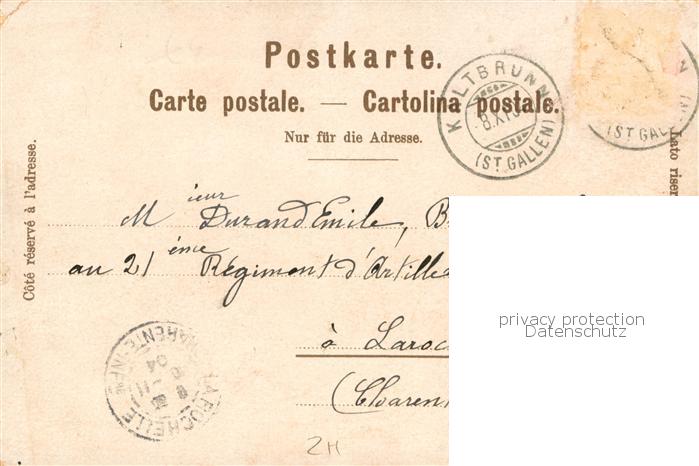 Postkarte.
Carte postale. — Cartolina postale.
Nur für die Adresse.
KALTBRUNN
8.XI.0
(ST. GALLEN)
N
(ST. GALL
Côté réservé à l'adresse.
Lato riser
Mieur Durand Emile, B
au 21ème Régiment d'Artille
à Laroc
(Charen
LA ROCHELLE
CHARENTE-INFRE
04
2H
privacy protection
Datenschutz